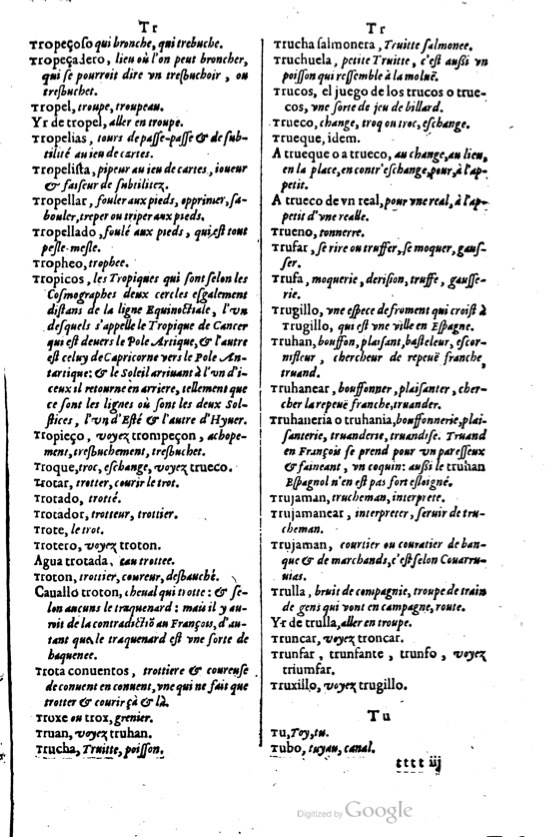 Tr
Tropeçoso qui bronche, qui trebuche.
Tropeçadero, lieu où l'on peut broncher,
qui se pourroit dire vn tresbuchoir, ou
tresbuchet.
Tropel, troupe, troupeau.
Yr de tropel, aller en troupe.
Tropelias, tours de passe-passe & de sub-
tilité au ieu de cartes.
Tropelista, pipeur au ieu de cartes, ioueur
& faiseur de subtilitez.
Tropellar, fouler aux pieds, opprimer, sa-
bouler, treper ou triper aux pieds.
Tropellado, foulé aux pieds, qui est tout
pesle-mesle.
Tropheo, trophee.
Tropicos, les Tropiques qui sont selon les
Cosmographes deux cercles esgalement
distans de la ligne Equinoctiale, l'vn
desquels s'appelle le Tropique de Cancer
qui est deuers le Pole Artique, & l'autre
est celuy de Capricorne vers le Pole An-
tartique: & le Soleil arriuant à l'vn d'i-
ceux il retourne en arriere, tellement que
ce sont les lignes où sont les deux Sol-
stices, l'vn d'Esté & l'autre d'Hyuer.
Tropieço, voyez trompeçon, achope-
ment, tresbuchement, tresbuchet.
Troque, troc, eschange, voyez trueco.
Trotar, trotter, courir le trot.
Trotado, trotté.
Trotador, trotteur, trottier.
Trote, le trot.
Trotero, voyez troton.
Agua trotada, eau trottee.
Troton, trottier, coureur, desbauché.
Cauallo troton, cheual qui trotte: & se-
lon aucuns le traquenard: mais il y au-
roit de la contradictiō au François, d'au-
tant que le traquenard est vne sorte de
haquenee.
Trota conuentos, trottiere & coureuse
de conuent en conuent, vne qui ne fait que
trotter & courir çà & là.
Troxe ou trox, grenier.
Truan, voyez truhan.
Trucha, Truitte, poisson.
Tr
Trucha salmonera, Truitte salmonee.
Truchuela, petite Truitte, c'est aussi vn
poisson qui ressemble à la moluë.
Trucos, el juego de los trucos o true-
cos, vne sorte de jeu de billard.
Trueco, change, troq ou troc, eschange.
Trueque, idem.
A trueque o a trueco, au change, au lieu,
en la place, en contr'eschange, pour, à l'ap-
petit.
A trueco de vn real, pour vne real, à l'ap-
petit d'vne realle.
Trueno, tonnerre.
Trufar, se rire ou truffer, se moquer, gaus-
ser.
Trufa, moquerie, derision, truffe, gausse-
rie.
Trugillo, vne espece de froment qui croist à
Trugillo, qui est vne ville en Espagne.
Truhan, bouffon, plaisant, basteleur, escor-
nifleur, chercheur de repeuë franche,
truand.
Truhanear, bouffonner, plaisanter, cher-
cher la repeuë franche, truander.
Truhaneria o truhania, bouffonnerie, plai-
santerie, truanderse, truandise. Truand
en François se prend pour vn paresseux
& faineant, vn coquin: aussi le truhan
Espagnol n'en est pas fort esloigné.
Trujaman, trucheman, interprete.
Trujamanear, interpreter, seruir de tru-
cheman.
Trujaman, courtier ou couratier de ban-
que & de marchands, c'est selon Couarru-
uias.
Trulla, bruit de compagnie, troupe de train
de gens qui vont en campagne, route.
Yr de trulla, aller en troupe.
Truncar, voyez troncar.
Trunfar, trunfante, trunfo, voyez
triumfar.
Truxillo, voyez trugillo.
Tu
Tu, Toy, tu.
Tubo, tuyau, canal.
tttt iij
Digitized by Google